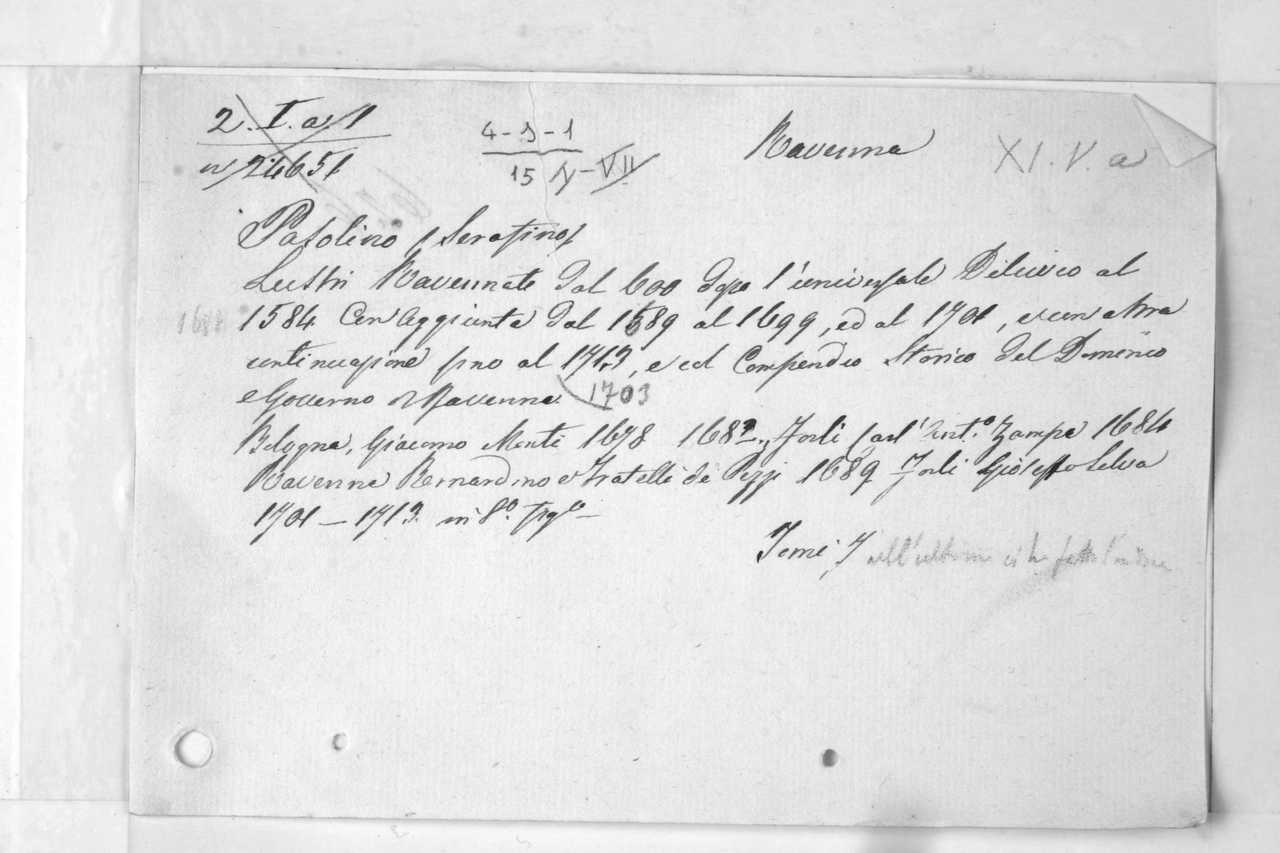 2. I. a/1
4-5-1
Ravenna
XI. V. a
n/24651
15 N-VII
Pasolino (Serafino)
Lustri Ravennate dal 600 dopo l'universale Diluvio al
1584 Con Aggiunta dal 1589 al 1699, ed al 1701, e con altra
continuazione fino al 1713, e col Compendio Storico del Dominio
e Governo di Ravenna. 1703
Bologna, Giacomo Monti 1678 1682, Forlì Ant.º Zampa 1684
Ravenna Bernardino e Fratelli de Pezzi 1689 Forlì Gioseffo Selva
1701 — 1713. in 8º.
Tomi, 7